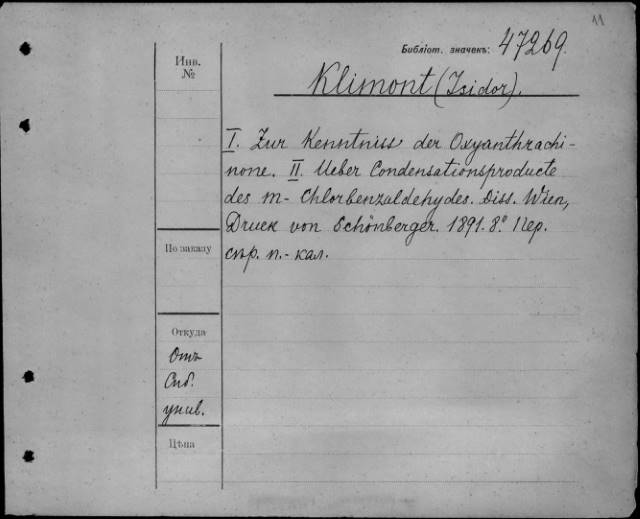 11
Библіот. значекъ: 47269.
Инв.
№
Klimont (Isidor).
I. Zur Kenntniss der Oxyanthrachi-
none. II. Ueber Condensationsproducte
des m- Chlorbenzaldehydes. Diss. Wien,
Druck von Schönberger. 1891. 8.º Пер.
сѣр. п.- кал.
По заказу
Откуда
Отъ
Спб.
унив.
Цѣна